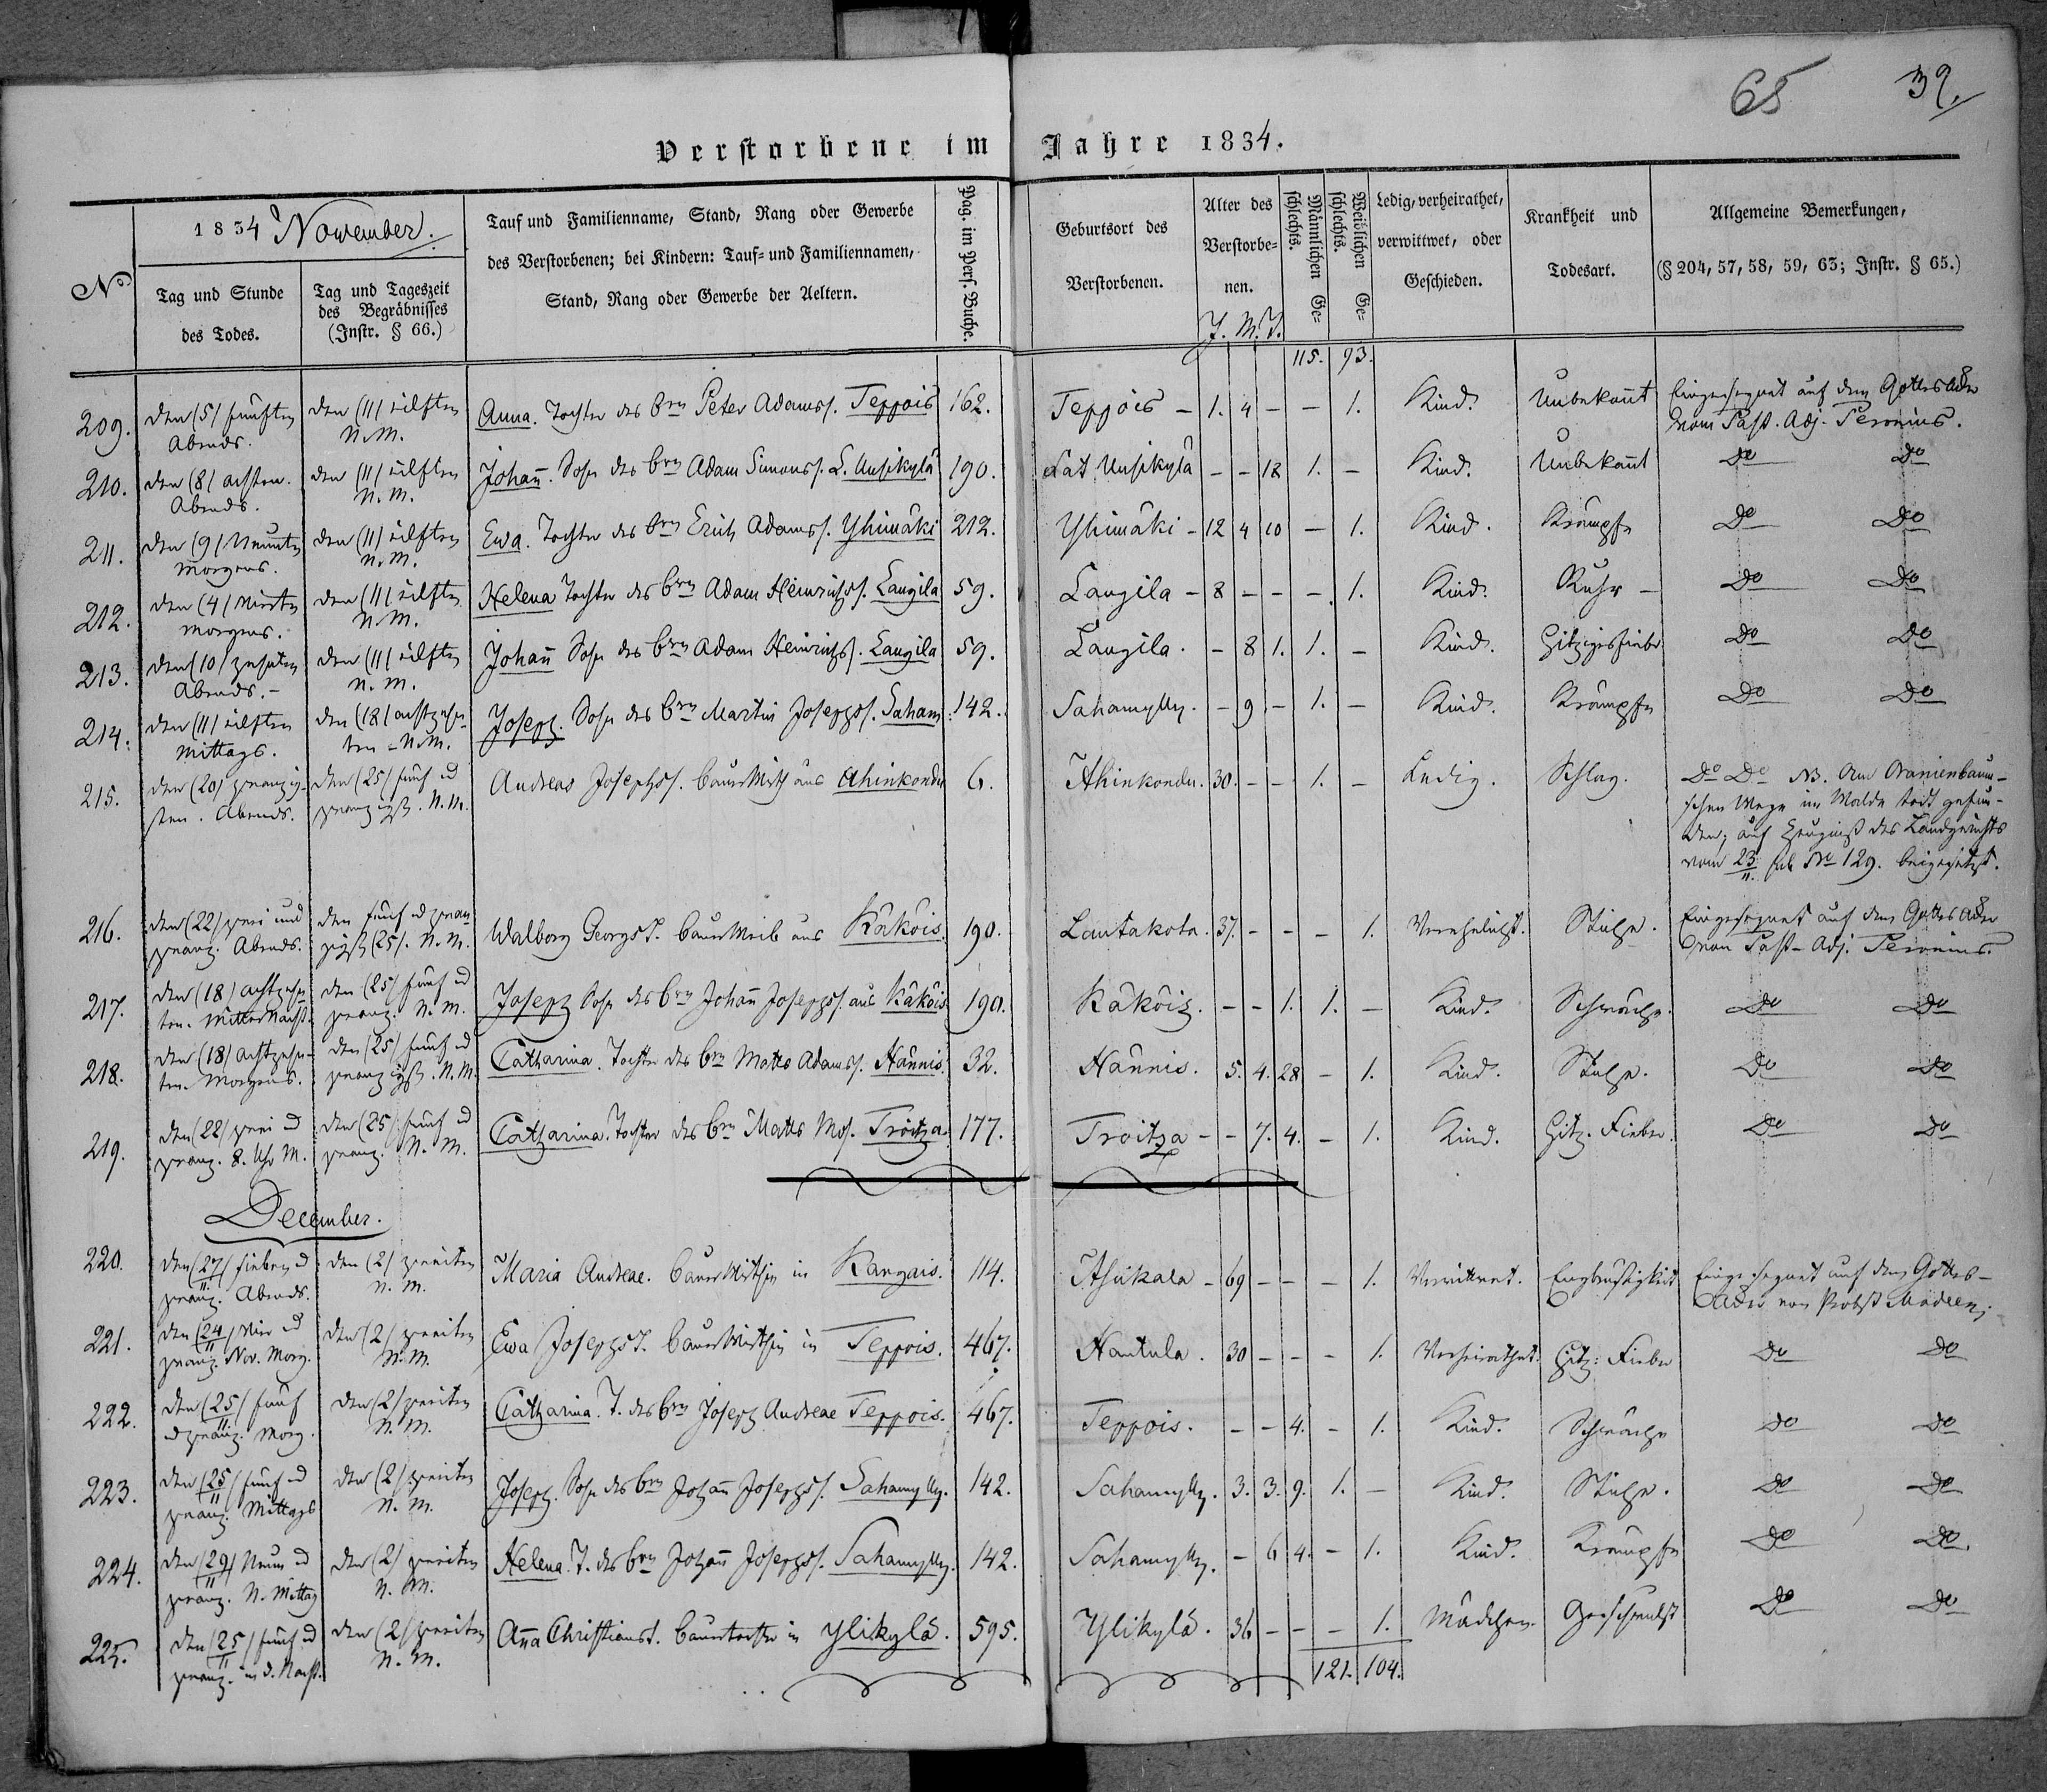 65 39.
Verstorbene im Jahre 1834.
No
1834 November.
Tag und Stunde des Todes.
Tag und Tageszeit des Begräbnisses (Instr. § 66.)
Tauf und Familienname, Stand, Rang oder Gewerbe
des Verstorbenen; bei Kindern: Tauf- und Familiennamen,
Stand, Rang oder Gewerbe der Aeltern.
Pag. im Pers. Buche.
Geburtsort des Verstorbenen.
Alter des Verstorbenen.
J. M. T.
Männlichen Geschlechts.
Weiblichen Geschlechts.
Ledig, verheirathet, verwittwet, oder Geschieden.
Krankheit und Todesart.
Allgemeine Bemerkungen,
(§ 204, 57, 58, 59, 63; Instr. § 65.)
115. 93.
209. den (5) fünften Abends. den (11) eilften N. M. Anna. Tochter des Brn Peter Adamss. Teppois 162. Teppois - 1. 4 - - 1. Kind. Unbekannt Eingesegnet auf dem Gottesacker vom Past. Adj. Peronius.
210. den (8) achten. Abends. den (11) eilften N. M. Johann. Sohn des Brn Adam Simonss. L. Uusikylä 190. Lat Uusikylä - - 18 1. - Kind. Unbekannt Do Do
211. den (9) Neunten morgens. den (11) eilften N. M. Ewa. Tochter des Brn Erich Adamss. Yhimäki 212. Yhimäki - 12 4 10 - 1. Kind. Krämpfe Do Do
212. den (4) Vierten morgens. den (11) eilften N. M. Helena Tochter des Brn Adam Heinrichss. Laugila 59. Laugila - 8 - - - 1. Kind. Ruhr - Do Do
213. den (10) zehnten Abends. - den (11) eilften N. M. Johann Sohn des Brn Adam Heinrichss. Laugila 59. Laugila. - 8 1. 1. - Kind. Hitzigesfieber Do Do
214. den (11) eilften Mittags. den (18) achtzehnten - N. M. Joseph. Sohn des Brn Martin Josephss. Saham 142. Sahamylly. - 9 - 1. - Kind. Krämpfe Do Do
215. den (20) zwanzigsten. Abends. den (25) fünf ud zwanzigst. N. M. Andreas Josephss. Bauer Wirth aus Ahinkondu 6. Ahinkondu. 30. - - 1. - Ledig. Schlag. Do Do NB. Am Oranienbaumschen Wege im Walde todt gefunden; auf Zeugniß des Landgerichts vom 23/11. sub No 129. beigesetzt.
216. den (22) zwei und zwanz. Abends. den fünf ud zwanzigst (25). N. M. Walborg Georgs T. Bauer Weib aus Käköis. 190. Lautakota. 37. - - - 1. Verehelicht. Eingesegnet auf dem Gottesacker von Past. Adj. Peronius.
217. den (18) achtzehnten. Mitternacht. den (25) fünf ud zwanz. N. M. Joseph Sohn des Brn Johann Josephss. aus Käköis 190. Käköis. - - 1. 1. - Kind. Schwäche. Do Do
218. den (18) achtzehnten. Morgens. den (25) fünf ud zwanzigst. N. M. Catharina. Tochter des Brn Matts Adamss. Hännis. 32. Hännis. 5. 4. 28 - 1. Kind. Do Do
219. den (22) zwei ud zwanz. 8. Uhr M. den (25) fünf ud zwanz. N. M. Catharina. Tochter des Brn Matts Mss. Troitza. 177. Troitza - - 7. 4. - 1. Kind. Hitz. Fieber. Do Do
December.
220. den (27/11.) sieben ud zwanz. Abends. den (2) zweiten N. M. Maria Andreae. Bauer Wirthin in Kangais. 114. 69 - - - 1. Verwittwet. Engbrüstigkeit Eingesegnet auf dem Gottesacker von Probst
221. den (24/11) Vier ud zwanz. Nov. Morg. den (2) zweiten N. M. Ewa Josephs T. Bauer Wirthin in Teppois. 467. Hantula. 30 - - - 1. Verheirathet. Hitz: Fieber Do Do
222. den (25/11.) fünf ud zwanz. Morg. den (2) zweiten N. M. Catharina. T. des Brn Joseph Andreae Teppois. 467. Teppois. - - 4. - 1. Kind. Schwäche Do Do
223. den (25/11) fünf ud zwanz. Mittags den (2) zweiten N. M. Joseph. Sohn des Brn Johann Josephss. Sahamylly. 142. Sahamylly. 3. 3. 9. 1. - Kind. Do Do
224. den (29/11) Neun ud zwanz. N. Mittag den (2) zweiten N. M. Helena. T. des Brn Johann Josephss. Sahamylly. 142. Sahamylly. - 6 4. - 1. Kind. Krämpfe Do Do.
225. den (25/11) fünf ud zwanz. in d. Nacht. den (2) zweiten N. M. Anna Christians T. Bauertochter in Ylikylä. 595. Ylikylä. 36 - - - 1. Mädchen. Geschwulst Do Do
121. 104.